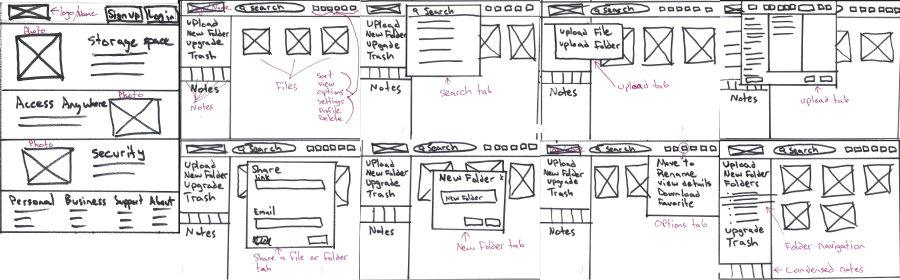 logo/Name
Sign up
Log in
Photo
Storage space
Photo
Access Anywhere
Photo
Security
Personal Business Support About
Search
Upload
New Folder
Upgrade
Trash
Notes
Notes
Files
Sort
View
Options
Settings
Profile
Delete
Search
Upload
New Folder
Upgrade
Trash
Notes
Search tab
Search
Upload File
Upload Folder
Notes
Upload tab
Upload tab
Search
Upload
New Folder
Upgrade
Trash
Notes
Share
Link
Email
Share a file or folder
tab
Search
Upload
New Folder
Upgrade
Trash
Notes
New Folder x
New Folder
New Folder tab
Search
Upload
New Folder
Upgrade
Trash
Notes
Move to
Rename
View details
Download
Favorite
Options tab
Search
Upload
New Folder
Folders
Upgrade
Trash
Folder navigation
Condensed notes